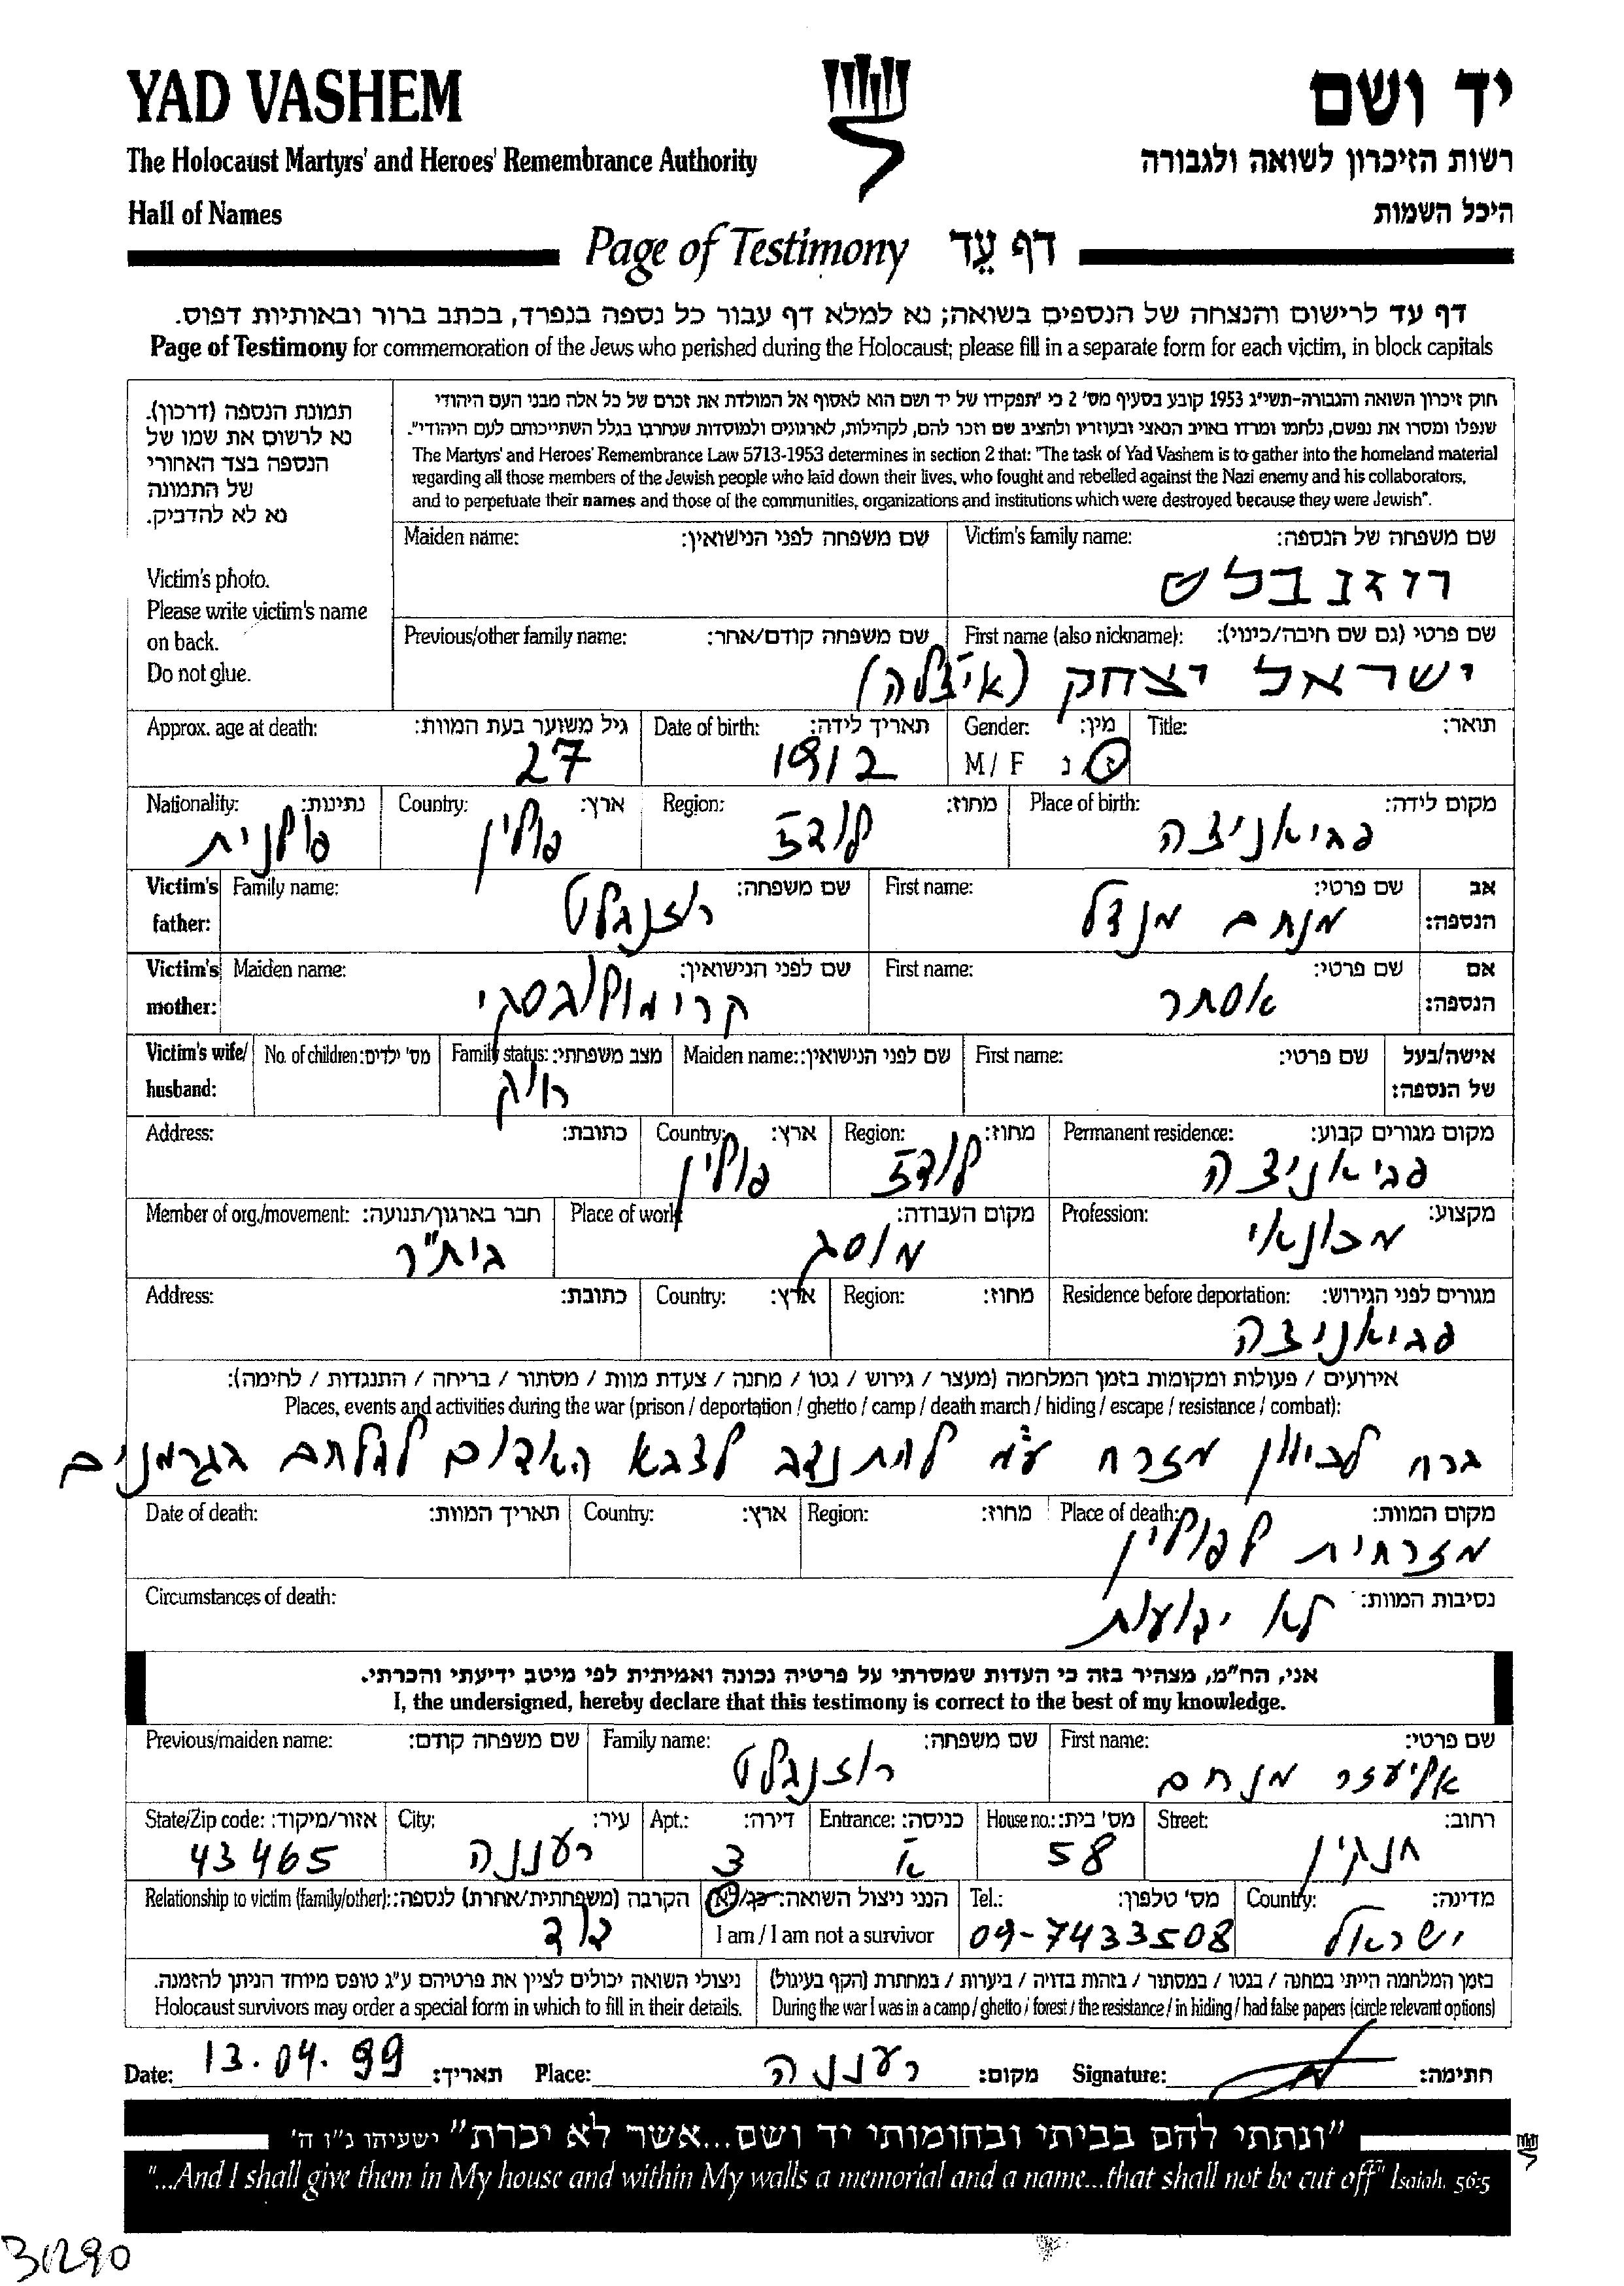 YAD VASHEM
יד ושם
The Holocaust Martyrs' and Heroes' Remembrance Authority
רשות הזיכרון לשואה ולגבורה
Hall of Names
היכל השמות
Page of Testimony דף עֵד
דף עד לרישום והנצחה של הנספים בשואה; נא למלא דף עבור כל נספה בנפרד, בכתב ברור ובאותיות דפוס.
Page of Testimony for commemoration of the Jews who perished during the Holocaust; please fill in a separate form for each victim, in block capitals
תמונת הנספה (דרכון).
נא לרשום את שמו של
הנספה בצד האחורי
של התמונה
נא לא להדביק.
Victim's photo.
Please write victim's name
on back.
Do not glue.
חוק זיכרון השואה והגבורה-תשי"ג 1953 קובע בסעיף מס' 2 כי "תפקידו של יד ושם הוא לאסוף אל המולדת את זכרם של כל אלה מבני העם היהודי
שנפלו ומסרו את נפשם, נלחמו ומרדו באויב הנאצי ובעוזריו ולהציב שם וזכר להם, לקהילות, לארגונים ולמוסדות שנחרבו בגלל השתייכותם לעם היהודי".
The Martyrs' and Heroes' Remembrance Law 5713-1953 determines in section 2 that: "The task of Yad Vashem is to gather into the homeland material
regarding all those members of the Jewish people who laid down their lives, who fought and rebelled against the Nazi enemy and his collaborators,
and to perpetuate their names and those of the communities, organizations and institutions which were destroyed because they were Jewish".
Maiden name: שם משפחה לפני הנישואין: Victim's family name: שם משפחה של הנספה:
רוזנבלט
Previous/other family name: שם משפחה קודם/אחר: First name (also nickname): שם פרטי (גם שם חיבה/כינוי):
ישראל יצחק (איצלה)
Approx. age at death: גיל משוער בעת המוות: Date of birth: תאריך לידה: Gender: מין: Title: תואר:
27 1912 M / F ז נ
Nationality: נתינות: Country: ארץ: Region: מחוז: Place of birth: מקום לידה:
פולנית פולין לודז פביאניצה
Victim's father: Family name: שם משפחה: First name: שם פרטי: אב הנספה:
רוזנבלט מנחם מנדל
Victim's mother: Maiden name: שם לפני הנישואין: First name: שם פרטי: אם הנספה:
אסתר
Victim's wife/ husband: No. of children: מס' ילדים: Family status: מצב משפחתי: Maiden name: שם לפני הנישואין: First name: שם פרטי: אישה/בעל של הנספה:
רווק
Address: כתובת: Country: ארץ: Region: מחוז: Permanent residence: מקום מגורים קבוע:
פולין לודז פביאניצה
Member of org./movement: חבר בארגון/תנועה: Place of work: מקום העבודה: Profession: מקצוע:
בית"ר מוסך מכונאי
Address: כתובת: Country: ארץ: Region: מחוז: Residence before deportation: מגורים לפני הגירוש:
פביאניצה
אירועים / פעולות ומקומות בזמן המלחמה (מעצר / גירוש / גטו / מחנה / צעדת מוות / מסתור / בריחה / התנגדות / לחימה):
Places, events and activities during the war (prison / deportation / ghetto / camp / death march / hiding / escape / resistance / combat):
ברח לכיוון מזרח ע"מ להתנדב לצבא האדום להלחם בגרמנים
Date of death: תאריך המוות: Country: ארץ: Region: מחוז: Place of death: מקום המוות:
מזרחית לפולין
Circumstances of death: נסיבות המוות:
לא ידועות
אני, הח"מ, מצהיר בזה כי העדות שמסרתי על פרטיה נכונה ואמיתית לפי מיטב ידיעתי והכרתי.
I, the undersigned, hereby declare that this testimony is correct to the best of my knowledge.
Previous/maiden name: שם משפחה קודם: Family name: שם משפחה: First name: שם פרטי:
רוזנבלט אליעזר מנחם
State/Zip code: אזור/מיקוד: City: עיר: Apt.: דירה: Entrance: כניסה: House no.: מס' בית: Street: רחוב:
43465 רעננה 3 א' 58 חנקין
Relationship to victim (family/other): הקרבה (משפחתית/אחרת) לנספה: הנני ניצול השואה: כן/לא Tel.: מס' טלפון: Country: מדינה:
דוד I am / I am not a survivor 09-7433508 ישראל
ניצולי השואה יכולים לציין את פרטיהם ע"ג טופס מיוחד הניתן להזמנה.
Holocaust survivors may order a special form in which to fill in their details.
בזמן המלחמה הייתי במחנה / בגטו / במסתור / בזהות בדויה / ביערות / במחתרת (הקף בעיגול)
During the war I was in a camp / ghetto / forest / the resistance / in hiding / had false papers (circle relevant options)
Date: 13.04.99 תאריך: Place: רעננה מקום: Signature: חתימה:
"ונתתי להם בביתי ובחומותי יד ושם...אשר לא יכרת" ישעיהו נ"ו ה'
"...And I shall give them in My house and within My walls a memorial and a name...that shall not be cut off" Isaiah. 56:5